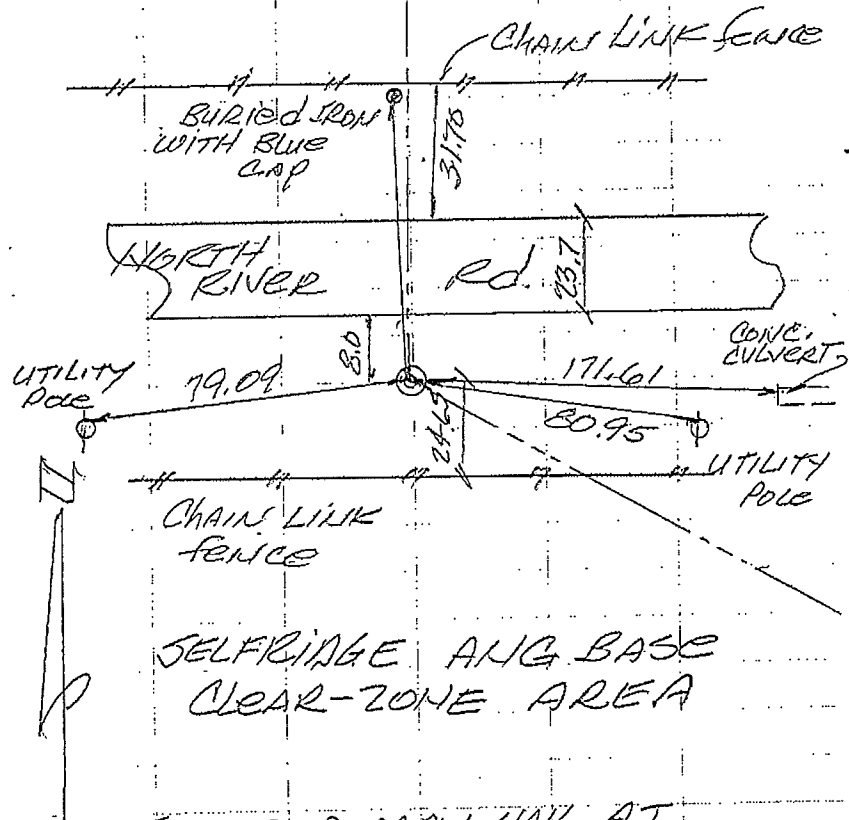 CHAIN LINK fence
BURIED IRON
WITH BLUE
CAP
31.70
NORTH
RIVER Rd.
23.7
8.0
CONC.
CULVERT
UTILITY
Pole
79.09
171.61
80.95
24.65
UTILITY
Pole
CHAIN LINK
fence
SELFRIDGE ANG BASE
CLEAR-ZONE AREA
AT